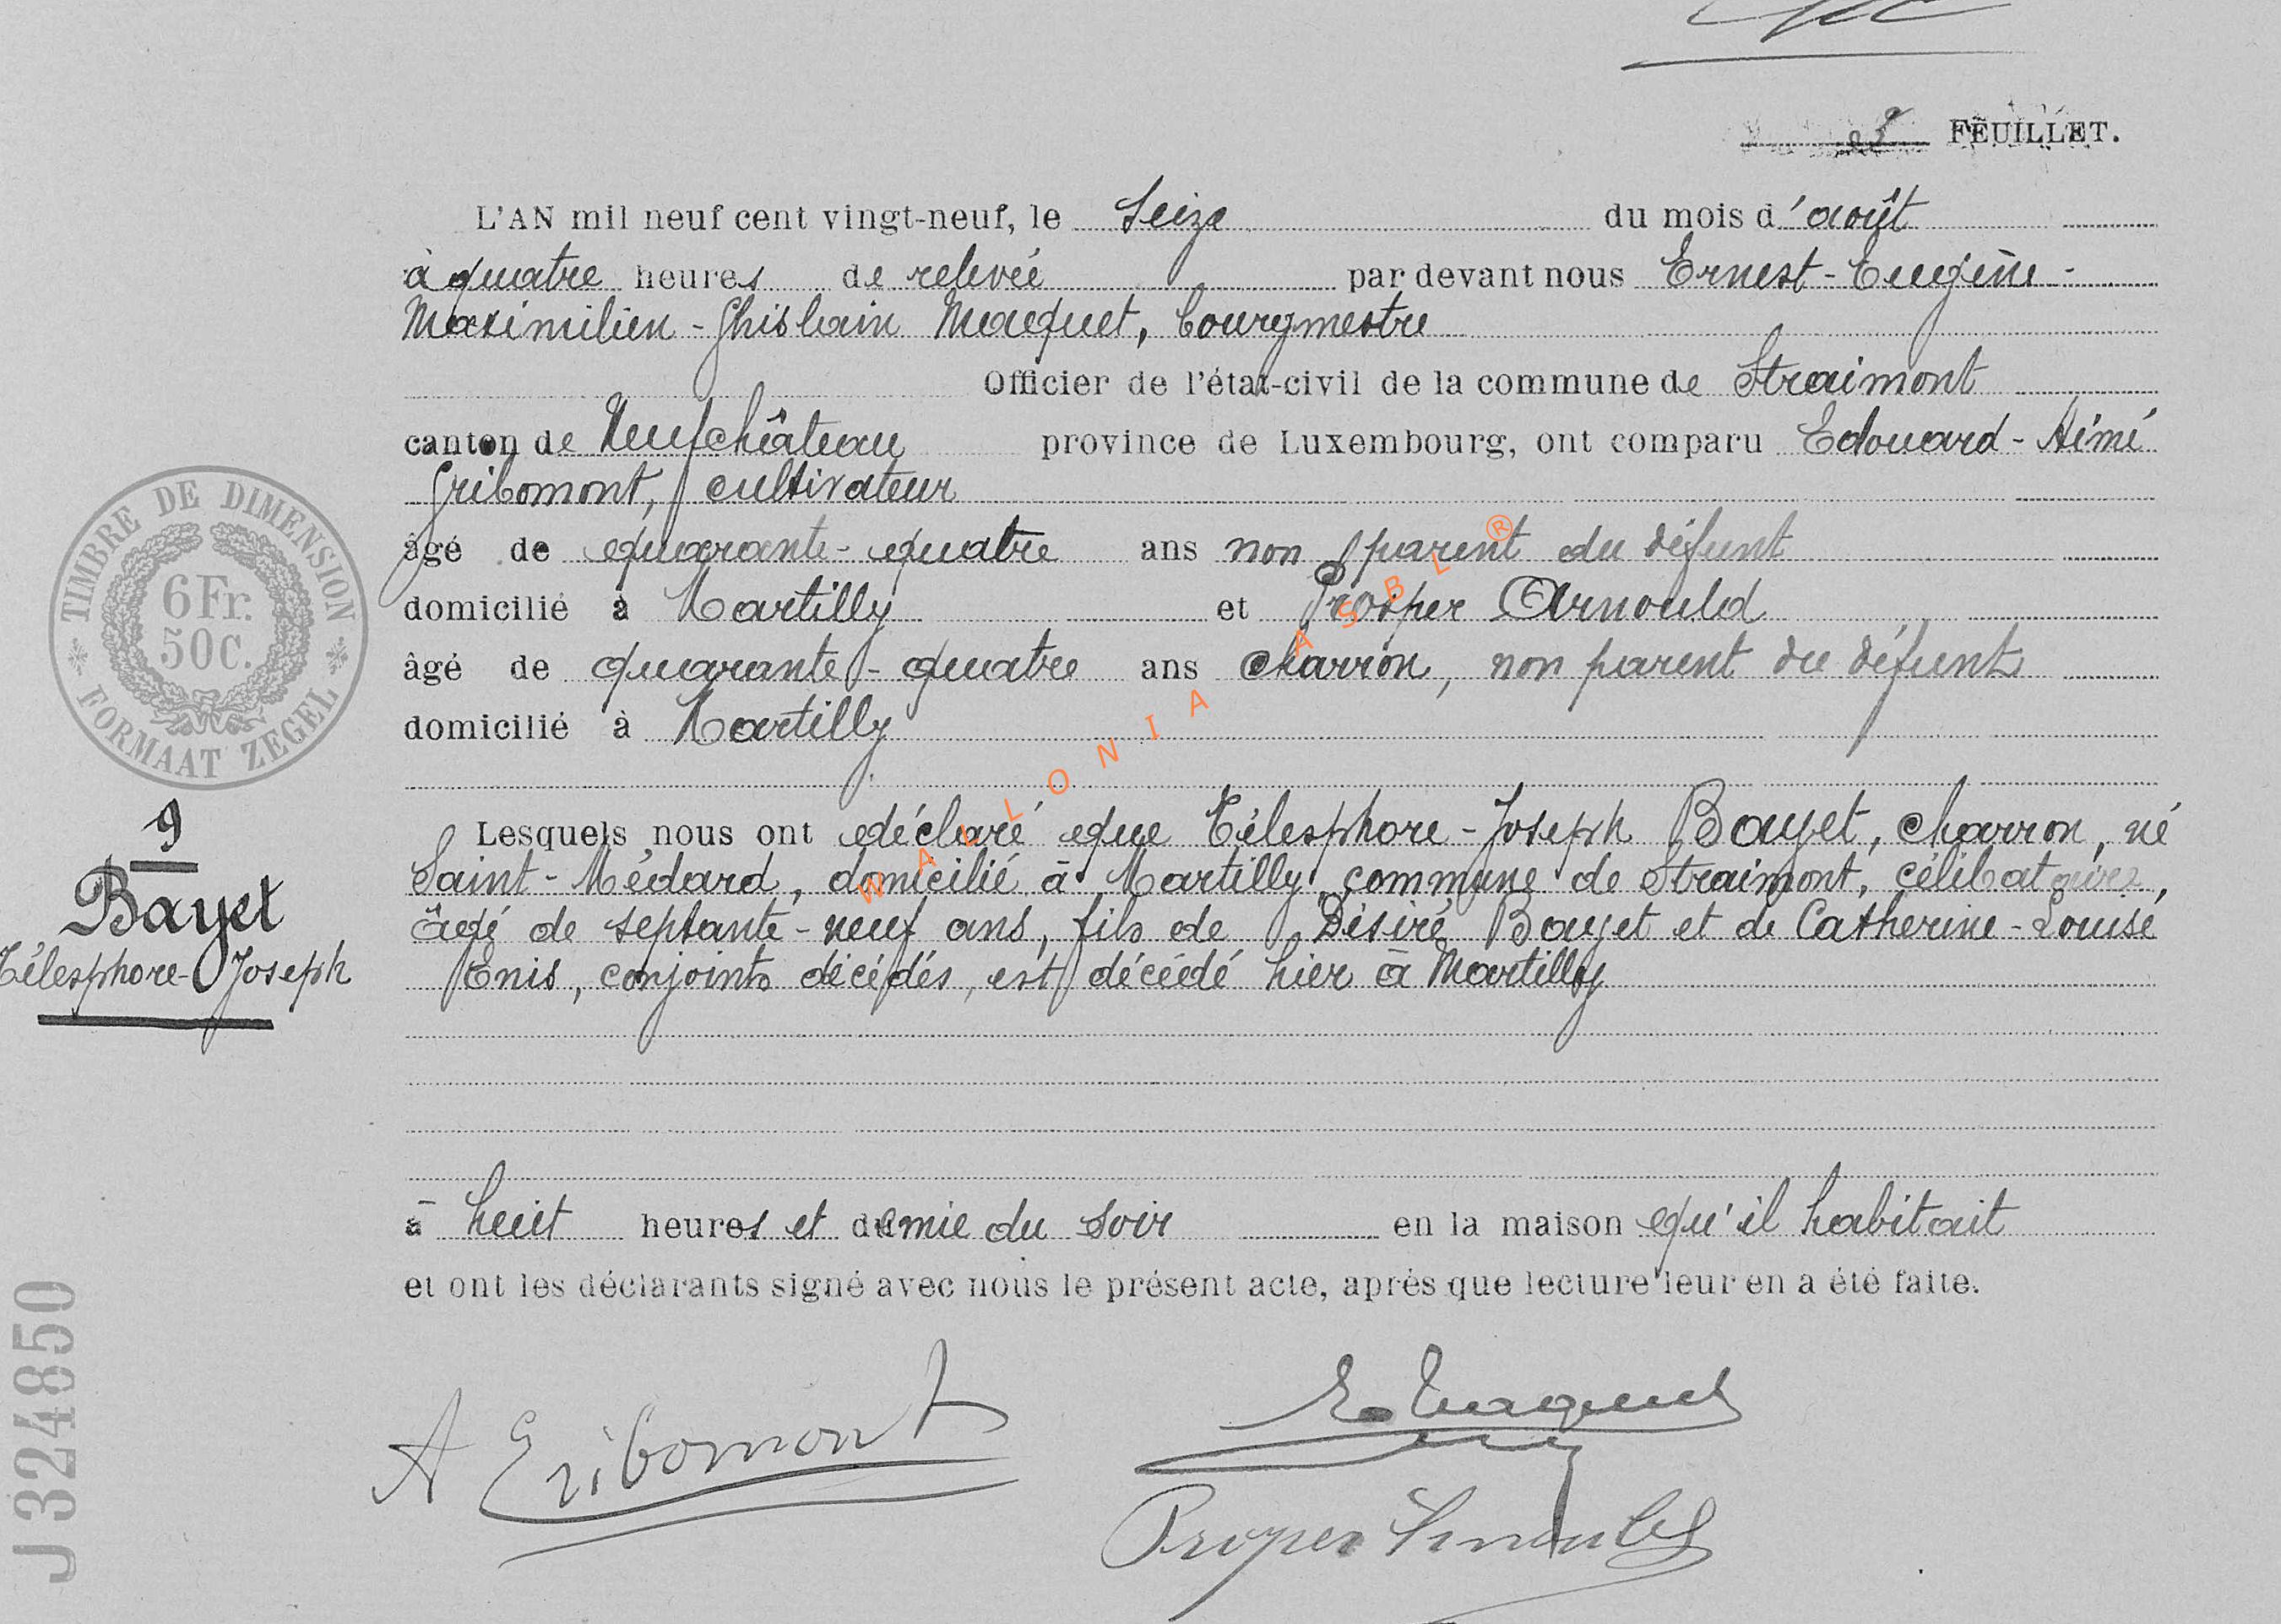 FEUILLET.
L'AN mil neuf cent vingt-neuf, le Seize du mois d'août
à quatre heures de relevée par devant nous Ernest-Eugène-
Maximilien-Ghislain Maquet, bourgmestre
Officier de l'état-civil de la commune de Straimont
canton de Neufchâteau province de Luxembourg, ont comparu Edouard-Aimé
Gribomont, cultivateur
âgé de quarante-quatre ans non parent du défunt
domicilié à Martilly et Prosper Arnould
âgé de quarante-quatre ans charron, non parent du défunt
domicilié à Martilly
TIMBRE DE DIMENSION
6Fr.
50C.
FORMAAT ZEGEL
9
Bayet
Télesphore-Joseph
Lesquels nous ont déclaré que Télesphore-Joseph Bayet, charron, né
Saint-Médard, domicilié à Martilly, commune de Straimont, célibataire,
âgé de septante-neuf ans, fils de Désiré Bayet et de Catherine-Louise
Enis, conjoints décédés, est décédé hier à Martilly
à huit heures et demie du soir en la maison qu'il habitait
et ont les déclarants signé avec nous le présent acte, après que lecture leur en a été faite.
A Gribomont
E. Maquet
Prosper Arnould
J 324850
WALLONIA ASBL ®